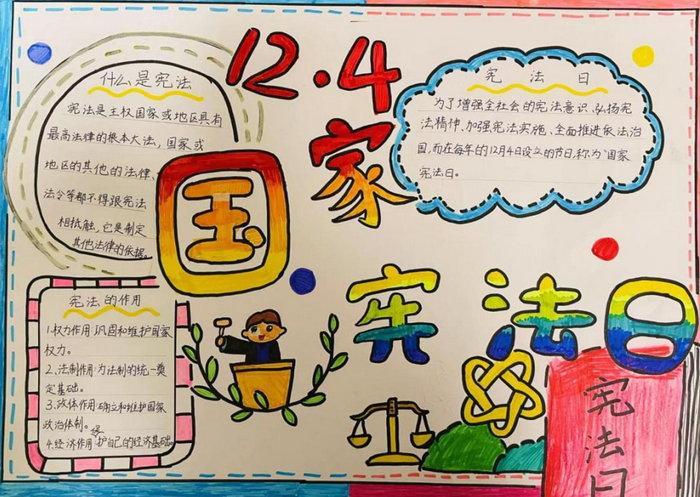 12.4
国家
宪法日
什么是宪法
宪法是主权国家或地区具有
最高法律的根本大法，国家或
地区的其他的法律、
法令等都不得跟宪法
相抵触，它是制定
其他法律的依据。
宪法日
为了增强全社会的宪法意识、弘扬宪
法精神、加强宪法实施、全面推进依法治
国，而在每年的12月4日设立的节日，称为"国家
宪法日。
宪法的作用
1.权力作用：巩固和维护国家
权力。
2.法制作用：为法制的统一奠
定基础。
3.政体作用：确立和维护国家
政治体制。
4.经济作用：护自己的经济基础
宪法日